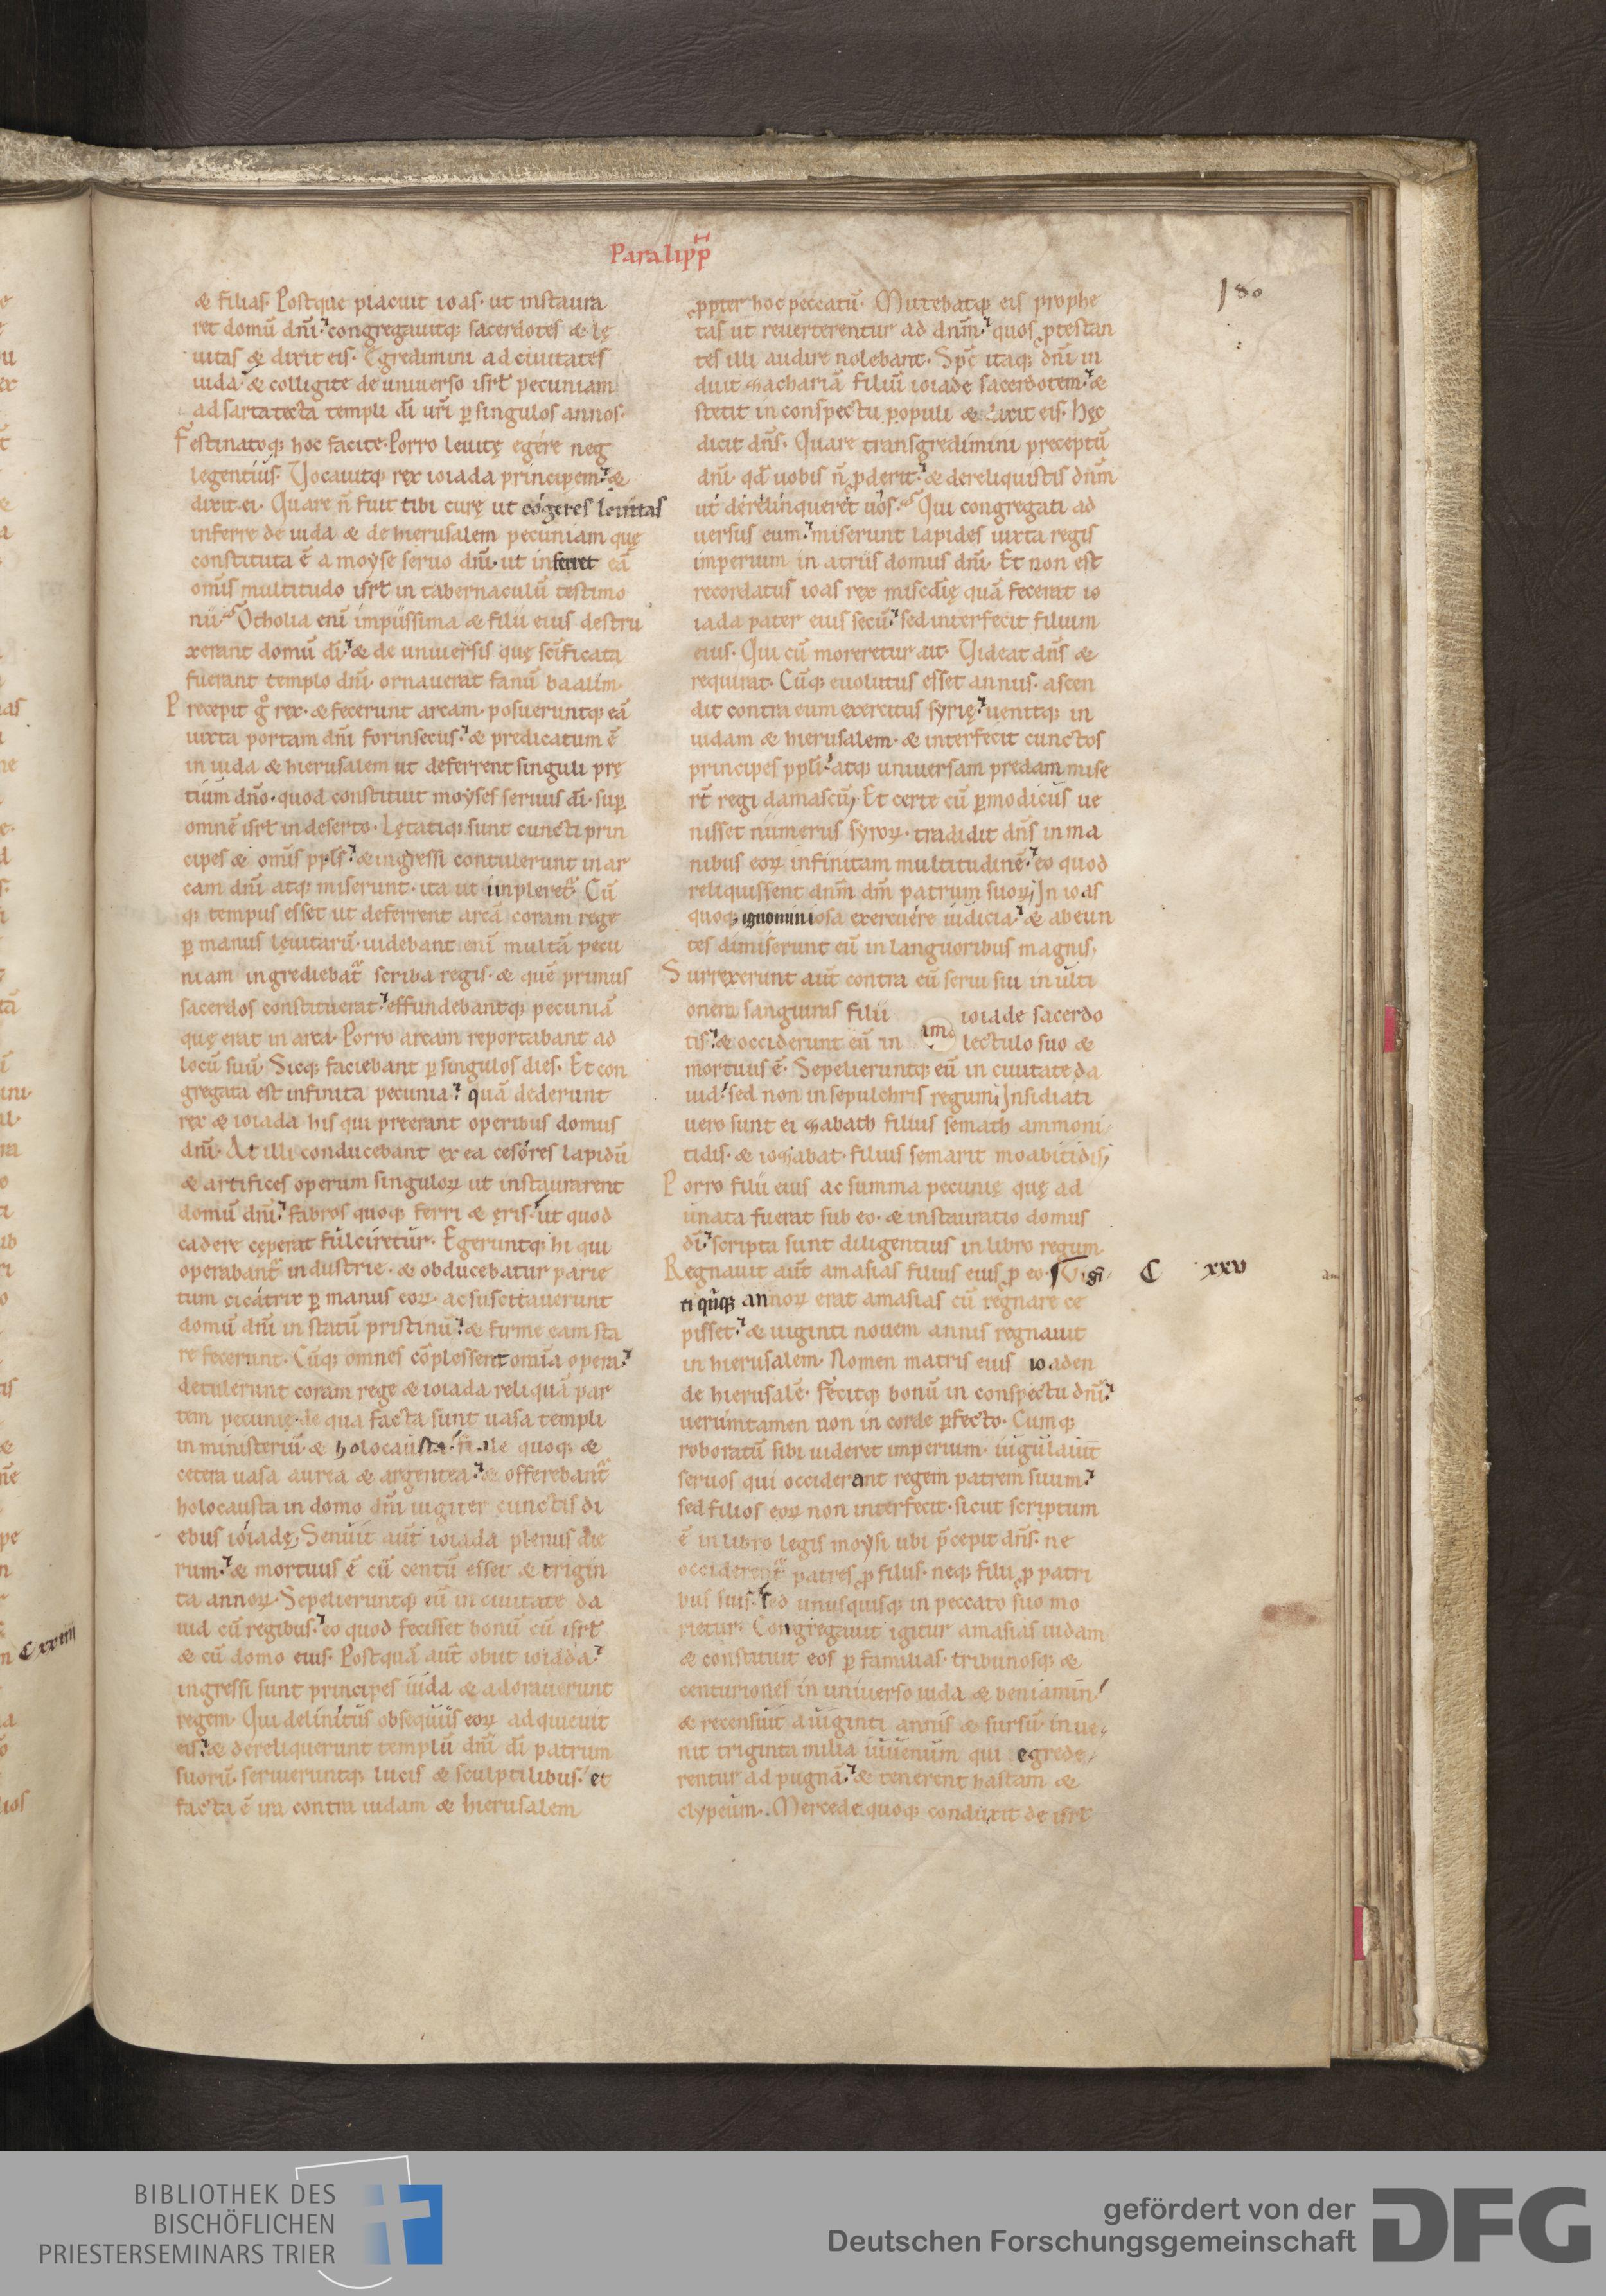 Paralipp̄
180
& filias. Postque placuit ioas. ut instaura
ret domū dn̄i. congregauitq; sacerdotes & lę
uitas & dixit eis. Egredimini ad ciuitates
iuda & colligite de uniuerso isrl̄ pecuniam
ad sarta tecta templi dī ur̄i ꝑ singulos annos.
Festinatoq; hoc facite. Porro leuitę egere neg
legentius. Vocauitq; rex ioiada principem. &
dixit ei. Quare n̄ fuit tibi curę ut cogeres leuitas
inferre de iuda & de hierusalem pecuniam quę
constituta ē a moyse seruo dn̄i. ut inferret eā
om̄is multitudo isrl̄ in tabernaculū testimo
nii. Otholia enī impiissima & filii eius destru
xerant domū dī. & de uniuersis quę sc̄ificata
fuerant templo dn̄i. ornauerat fanū baalim.
Precepit gͦ rex. & fecerunt arcam. posueruntq; eā
iuxta portam dn̄i forinsecus. & predicatum ē
in iuda & hierusalem ut deferrent singuli prę
tium dn̄o. quod constituit moyses seruus dī. suꝑ
omnē isrl̄ in deserto. Lętatiq; sunt cuncti prin
cipes & om̄is ppl̄s. & ingressi contulerunt in ar
cam dn̄i atq; miserunt. ita ut impleret̄. Cū
q; tempus esset ut deferrent arcā coram rege
ꝑ manus lęuitarū. uidebant enī multā pecu
niam ingrediebat̄ scriba regis. & quē primus
sacerdos constituerat. effundebantq; pecuniā
quę erat in arca. Porro arcam reportabant ad
locū suū. Sicq; faciebant ꝑ singulos dies. Et con
gregata est infinita pecunia. quā dederunt
rex & ioiada his qui preerant operibus domus
dn̄i. At illi conducebant ex ea cesores lapidū
& artifices operum singuloꝝ ut instaurarent
domū dn̄i. fabros quoq; ferri & ęris. ut quod
cadere cęperat fulciretur. Egeruntq; hi qui
operabant̄ industrie. & obducebatur parie
tum cicatrix ꝑ manus eoꝝ. ac suscitauerunt
domū dn̄i in statū pristinū. & firme eam sta
re fecerunt. Cūq; omnes cōplessent omīa opera.
detulerunt coram rege & ioiada reliquā par
tem pecunię. de qua facta sunt uasa templi
in ministeriū. & holocausta. fiale quoq; &
cetera uasa aurea & argentea. & offerebant̄
holocausta in domo dn̄i iugiter cunctis di
ebus ioiadę. Senuit aut̄ ioiada plenus die
rum. & mortuus ē cū centū esset & trigin
ta annoꝝ. Sepelieruntq; eū in ciuitate da
uid cū regibus. eo quod fecisset bonū cū isrl̄
& cū domo eius. Postquā aut̄ obiit ioiada.
ingressi sunt principes iuda & adorauerunt
regem. Qui delinitus obsequiis eoꝝ adquieuit
eis. & dereliquerunt templū dn̄i dī patrum
suorū. serueruntq; lucis & sculptilibus. et
facta ē ira contra iudam & hierusalem
ꝓpter hoc peccatū. Mittebatq; eis prophe
tas ut reuerterentur ad dn̄m. quos ꝓtestan
tes illi audire nolebant. Sp̄c itaq; dn̄i in
duit zachariā filiū ioiadę sacerdotem. &
stetit in conspectu populi & dixit eis. Hęc
dicit dn̄s. Quare transgredimini preceptū
dn̄i. qd̄ uobis n̄ ꝓderit. & dereliquistis dn̄m
ut derelinqueret uos. Qui congregati ad
uersus eum. miserunt lapides iuxta regis
imperium in atriis domus dn̄i. Et non est
recordatus ioas rex misc̄dię quā fecerat io
iada pater eius secū. sed interfecit filium
eius. Qui cū moreretur ait. Videat dn̄s &
requirat. Cūq; euolutus esset annus. ascen
dit contra eum exercitus syrię. uenitq; in
iudam & hierusalem. & interfecit cunctos
principes ppl̄i. atq; uniuersam predam mise
rt̄ regi damascū. Et certe cū ꝑmodicus ue
nisset numerus syroꝝ. tradidit dn̄s in ma
nibus eoꝝ infinitam multitudinē. eo quod
reliquissent dn̄m dm̄ patrum suoꝝ. In ioas
quoq; ignominiosa exercuere iudicia. & abeun
tes dimiserunt eū in languoribus magnis.
Surrexerunt aut̄ contra eū serui sui in ulti
onem sanguinis filii ioiade sacerdo
tis. & occiderunt eū in lectulo suo &
im
mortuus ē. Sepelieruntq; eū in ciuitate da
uid. sed non in sepulchris regum. Insidiati
uero sunt ei zabath filius semath ammoni
tidis. & iozabat. filius semarit moabitidis.
Porro filii eius ac summa pecunię quę ad
unata fuerat sub eo. & instauratio domus
dī. scripta sunt diligentius in libro regum.
Regnauit aut̄ amasias filius eius ꝓ eo. Vigī
C xxv
ti qn̄q; annoꝝ erat amasias cū regnare ce
pisset. & uiginti nouem annis regnauit
in hierusalem. Nomen matris eius ioaden
de hierusalē. Fecitq; bonū in conspectu dn̄i.
uerumtamen non in corde ꝑfecto. Cumq;
roboratū sibi uideret imperium. iugulauit
seruos qui occiderant regem patrem suum.
sed filios eoꝝ non interfecit. sicut scriptum
ē in libro legis moysi ubi p̄cepit dn̄s. ne
occiderent̄ patres ꝓ filiis. neq; filii ꝓ patri
bus suis. sed unusquisq; in peccato suo mo
rietur. Congregauit igitur amasias iudam
& constituit eos ꝑ familias. tribunosq; &
centuriones in uniuerso iuda & beniamin
& recensuit a uiginti annis & sursū. inue
nit triginta milia iuuenum qui egrede
rentur ad pugnā. & tenerent hastam &
clypeum. Mercede quoq; conduxit de isrl̄
C xxiiii
BIBLIOTHEK DES
BISCHÖFLICHEN
PRIESTERSEMINARS TRIER
gefördert von der
Deutschen Forschungsgemeinschaft
DFG